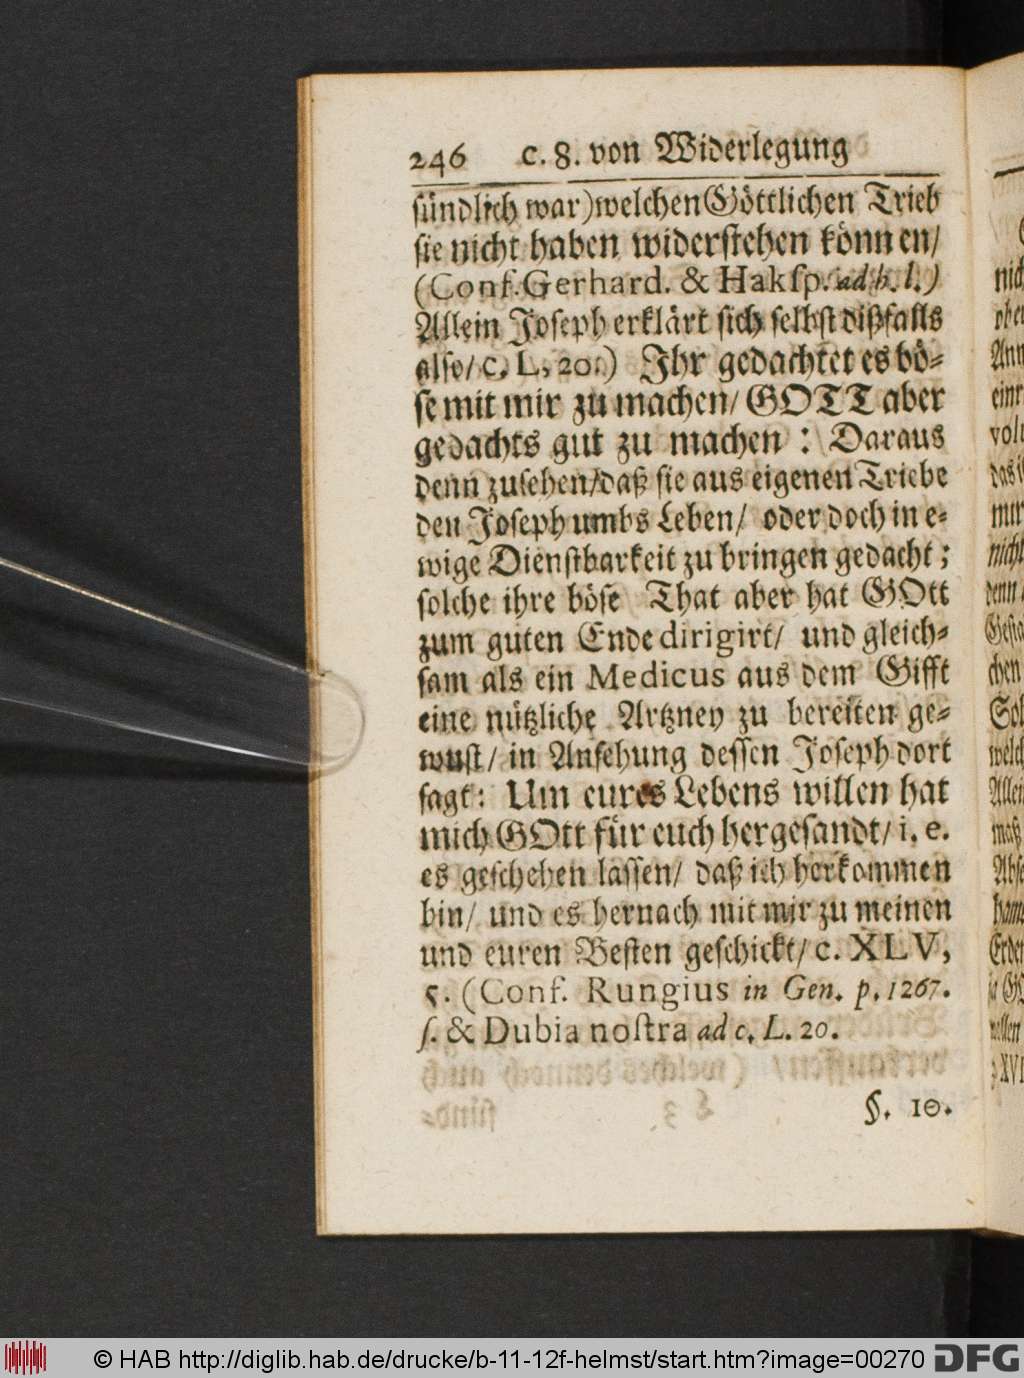 246 c. 8. von Widerlegung
sündlich war) welchen Göttlichen Trieb
sie nicht haben widerstehen können/
(Conf. Gerhard. & Hakſp. ad h. l.)
Allein Joseph erklärt sich selbst dißfalls
also/ c. L, 20.) Ihr gedachtet es bö-
se mit mir zu machen/ GOTT aber
gedachts gut zu machen : Daraus
denn zusehen/ daß sie aus eigenen Triebe
den Joseph umbs Leben/ oder doch in e-
wige Dienstbarkeit zu bringen gedacht;
solche ihre böse That aber hat GOtt
zum guten Ende dirigirt/ und gleich-
sam als ein Medicus aus dem Gifft
eine nützliche Artzney zu bereiten ge-
wust/ in Ansehung dessen Joseph dort
sagt: Um eures Lebens willen hat
mich GOtt für euch hergesandt/ i. e.
es geschehen lassen/ daß ich herkommen
bin/ und es hernach mit mir zu meinen
und euren Besten geschickt/ c. XLV,
5. (Conf. Rungius in Gen. p. 1267.
ſ. & Dubia noſtra ad c. L. 20.
§. 10.
nich
ober
Ann
einr
volu
das i
mir
nicht
denn
Gesta
chen
Sol
welch
Allei
maß
Abse
hame
Erden
ja GO
wollen
XVI
© HAB http://diglib.hab.de/drucke/b-11-12f-helmst/start.htm?image=00270 DFG